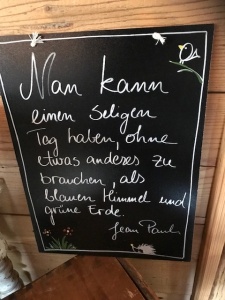 Man kann
einen seligen
Tag haben, ohne
etwas anderes zu
brauchen, als
blauen Himmel und
grüne Erde.
Jean Paul